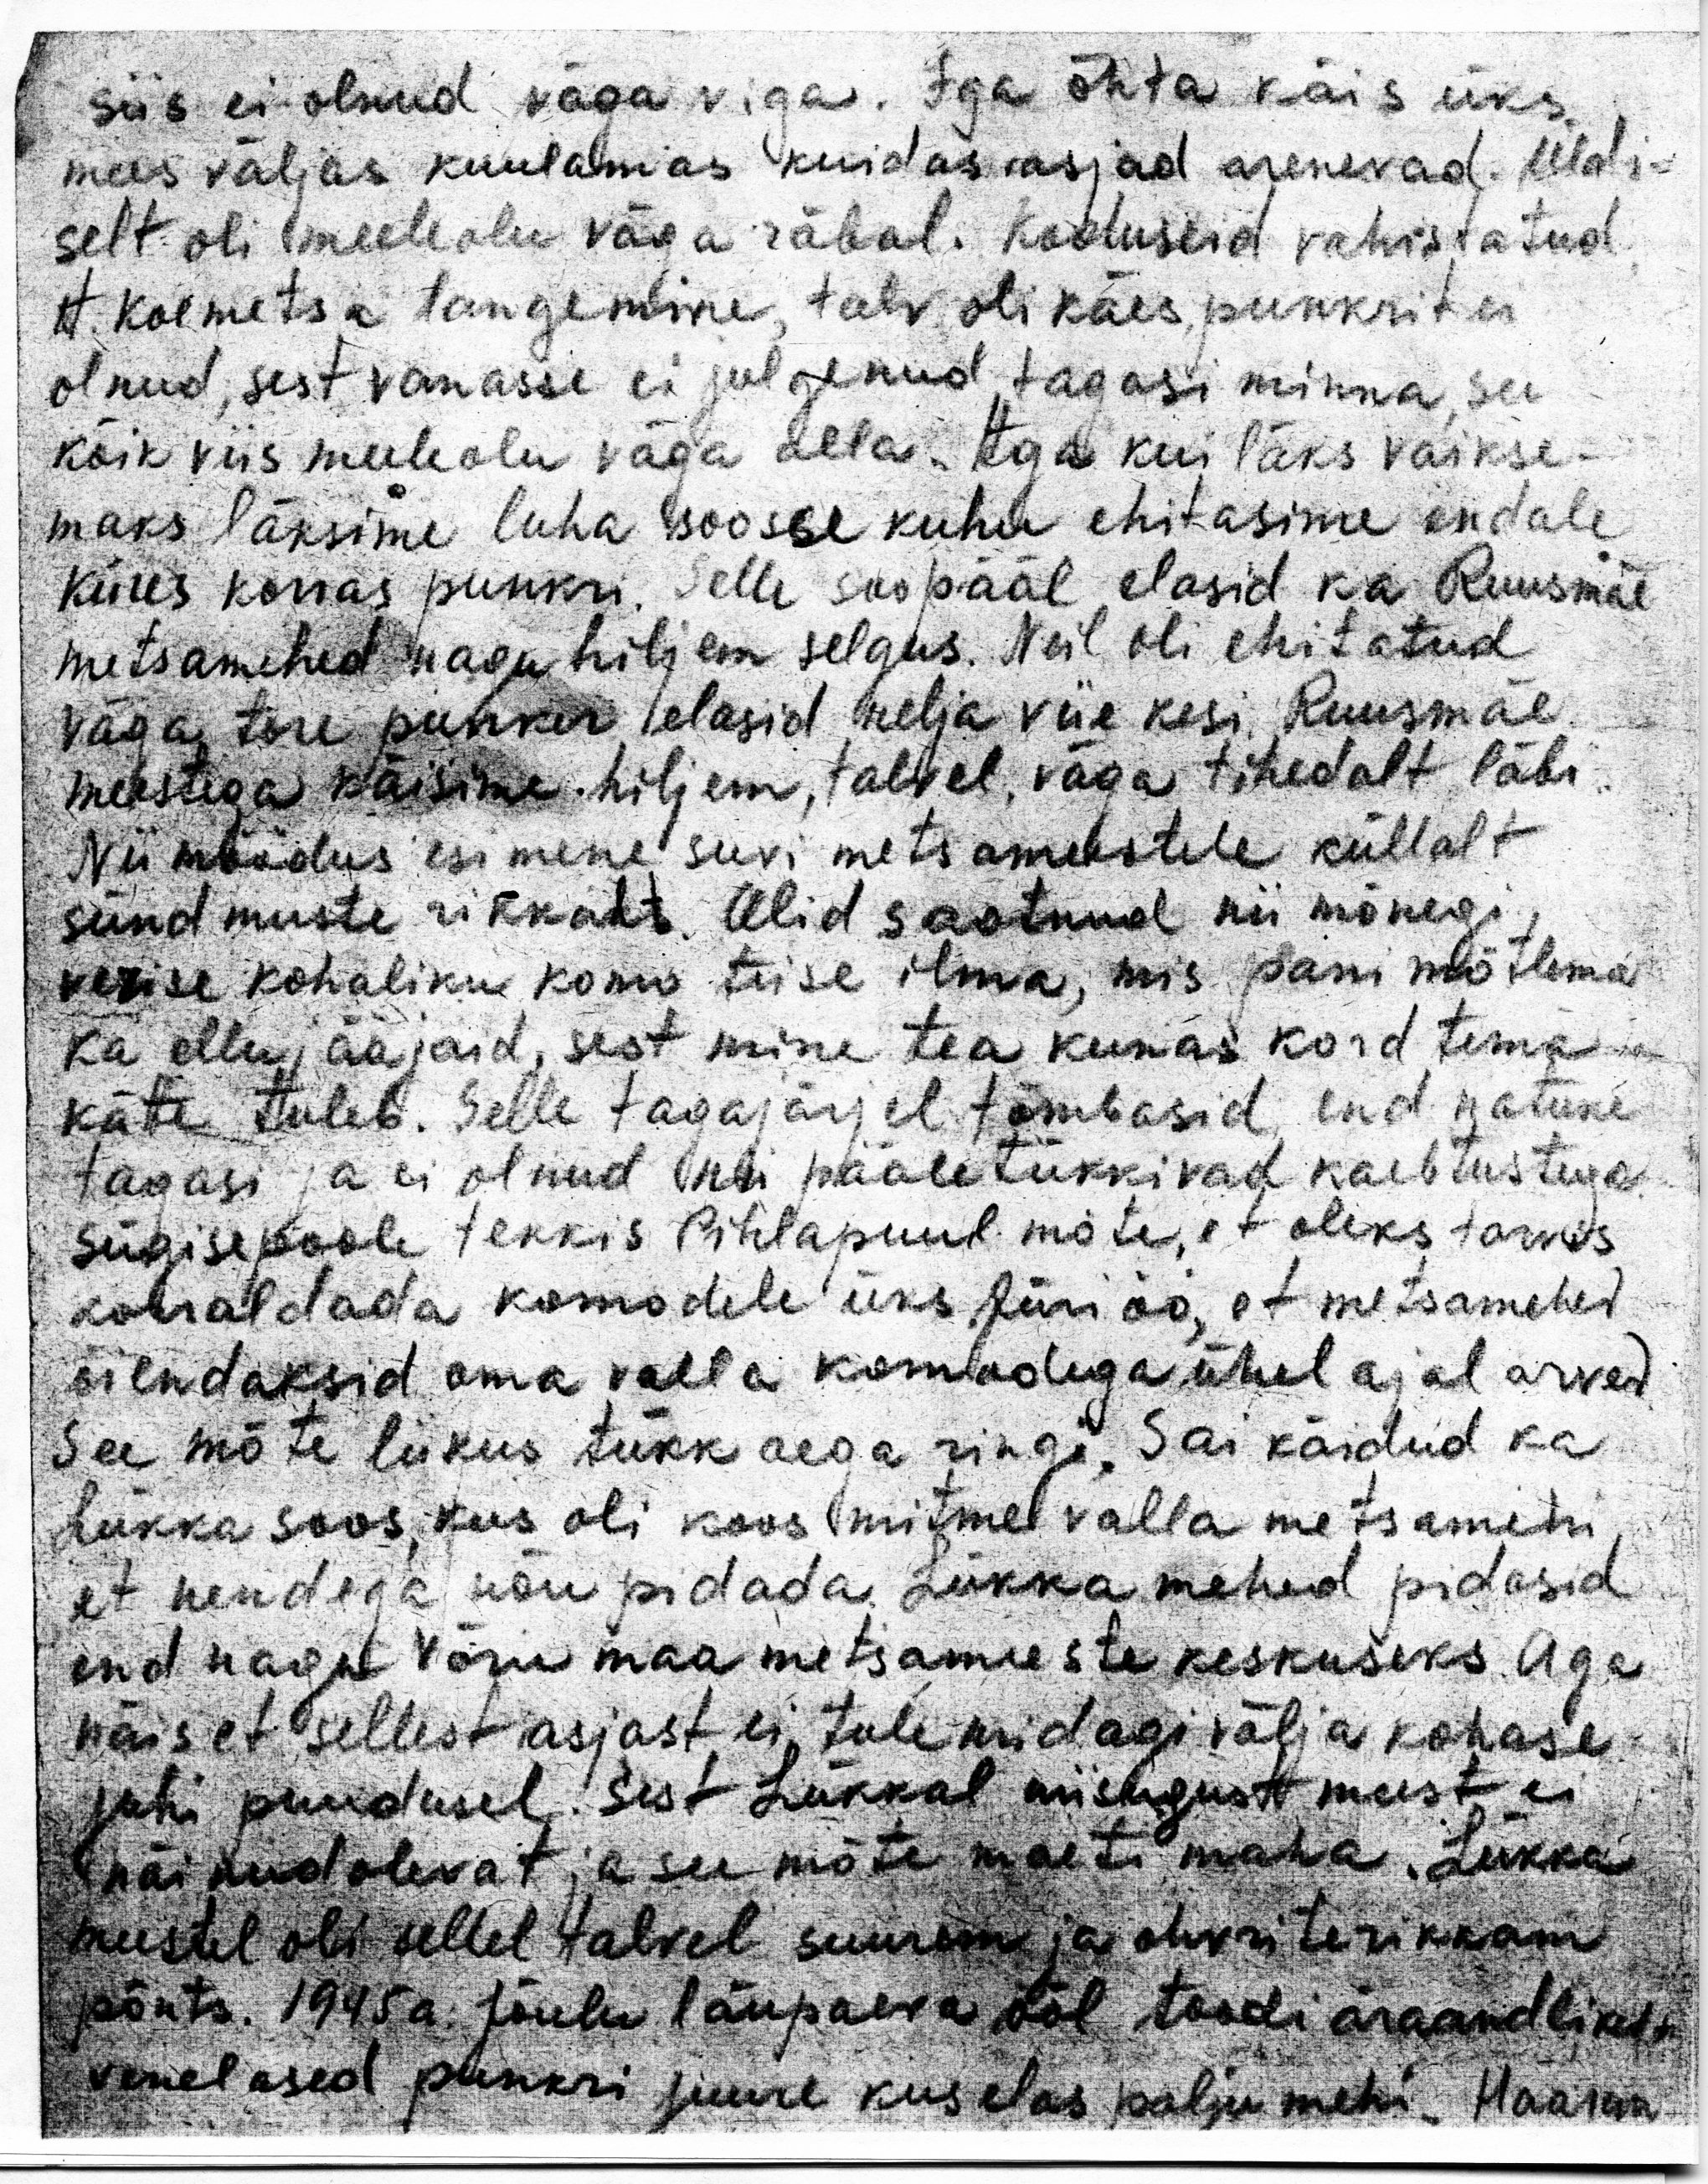 siis ei olnud väga viga. Iga õhta käis üks
mees väljas kuulamas kuidas asjad arenevad. Üldi-
selt oli meeleolu väga räbal. Koduseid vahistatud,
A. Kolmetsa langemine, talv oli käes, punkrit ei
olnud, sest vanasse ei julgenud tagasi minna, see
kõik viis meeleolu väga alla. Aga kui läks vaikse-
maks läksime luha soosse kuhu ehitasime endale
küües korras punkri. Selle soo pääl elasid ka Ruusmäe
metsamehed nagu hiljem selgus. Neil oli ehitatud
väga tore punker elasid nelja viie kesi. Ruusmäe
meestega käisime hiljem, talvel, väga tihedalt läbi.
Nii möödus esimene suvi metsameestele küllalt
sündmuste rikkalt. Olid saatnud nii mõnegi,
verise kohaliku komo teise ilma, mis pani mõtlema
ka ellujääjaid, sest mine tea kunas kord tema
käte tuleb. Selle tagajärjel tõmbasid end natuke
tagasi ja ei olnud nii pääletükkivad kaebtustega.
Sügisepoole tekkis Pihlapuul mõte, et oleks tarvis
korraldada komodele üks Jüriöö, et metsamehed
õilndaksid oma valla komodega ühel ajal arved
See mõte liikus tükk aega ringi. Sai käidud ka
Lükka soos, kus oli koos mitme valla metsamehi,
et nendega nõu pidada. Lükka mehed pidasid
end nagu Võrumaa metsameeste keskuseks. Aga
näis et sellest asjast ei tule midagi välja kohase
juhi puudusel. Sest Lükkal niisugust meest ei
näinud olevat ja see mõte maeti maha. Lükka
meestel oli sellel talvel suurem ja ohvriterikkam
põnts. 1945a. Jõulu laupäeva ööl toodi äraandlikult
venelased punkri juure kus elas palju mehi.